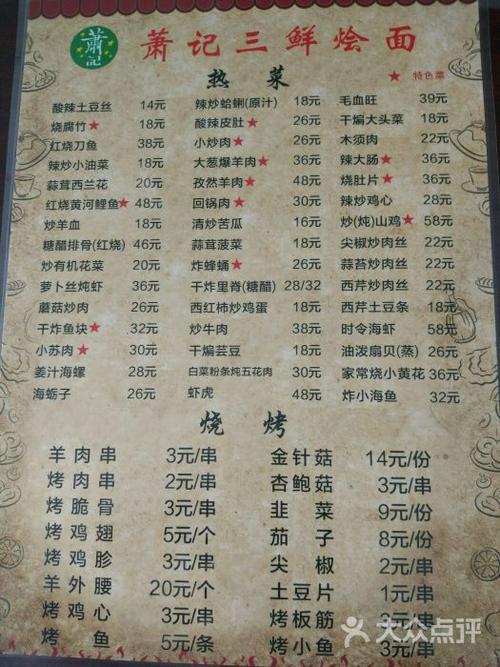 萧記
萧记三鲜烩面
热菜
★特色菜
酸辣土豆丝 14元 辣炒蛤蜊(原汁) 18元 毛血旺 39元
烧腐竹★ 18元 酸辣皮肚★ 26元 干煸大头菜 18元
红烧刀鱼 38元 小炒肉★ 26元 木须肉 22元
辣炒小油菜 18元 大葱爆羊肉★ 36元 辣大肠★ 36元
蒜茸西兰花 20元 孜然羊肉★ 48元 烧肚片★ 36元
红烧黄河鲤鱼★ 48元 回锅肉★ 30元 辣炒鸡心 30元
炒羊血 18元 清炒苦瓜 16元 炒(炖)山鸡★ 58元
糖醋排骨(红烧) 46元 蒜茸菠菜 18元 尖椒炒肉丝 22元
炒有机花菜 20元 炸蜂蛹★ 26元 蒜苔炒肉丝 22元
萝卜丝炖虾 36元 干炸里脊(糖醋) 28/32 西芹炒肉丝 22元
蘑菇炒肉 26元 西红柿炒鸡蛋 18元 西芹土豆条 18元
干炸鱼块★ 32元 炒牛肉 38元 时令海虾 58元
小苏肉★ 30元 干煸芸豆 18元 油泼扇贝(蒸) 26元
姜汁海螺 28元 白菜粉条炖五花肉 30元 家常烧小黄花 36元
海蛎子 26元 虾虎 48元 炸小海鱼 32元
烧烤
羊肉串 3元/串 金针菇 14元/份
烤肉串 2元/串 杏鲍菇 3元/串
烤脆骨 3元/串 韭菜 9元/份
烤鸡翅 5元/个 茄子 8元/份
烤鸡胗 3元/串 尖椒 2元/串
羊外腰 20元/个 土豆片 1元/串
烤鸡心 3元/串 烤板筋 3元/串
烤鱼 5元/条 烤小鱼 3元/串
大众点评